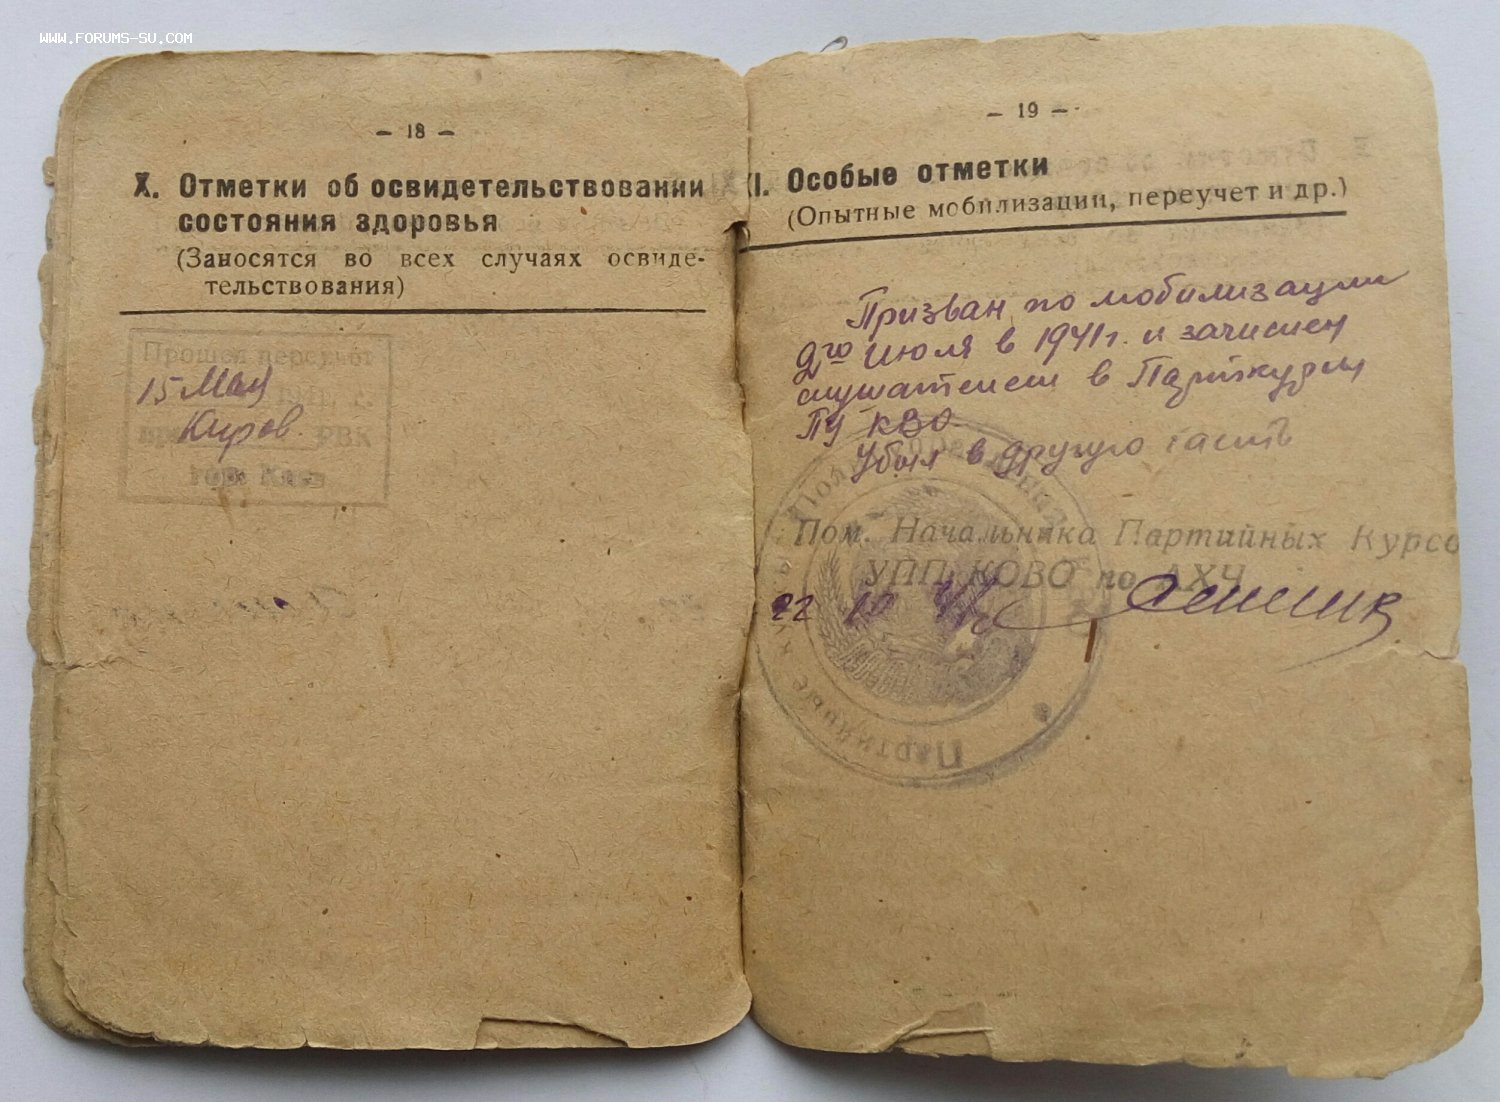 WWW.FORUMS-SU.COM
— 18 —
X. Отметки об освидетельствовании
состояния здоровья
(Заносятся во всех случаях освиде-
тельствования)
Прошел
15 Мая
Киров РВК
гор.
— 19 —
XI. Особые отметки
(Опытные мобилизации, переучет и др.)
Призван по мобилизации
2го июля в 1941г. и зачислен
слушателем в Парткурсы
ПУ КВО.
Убыл в другую часть
Пом. Начальника Партийных Курсо
УПП КОВО по АХЧ
22 10 41г
Партийные